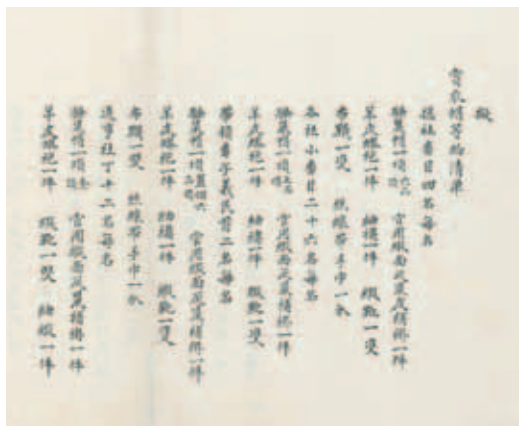 擬
賞衣帽等物清單
總社番目四名每名
騷鼠帽一頂 官用緞面灰鼠皮補褂一件
羊皮蟒袍一件 紬襖一件 緞靴一雙
布襪一雙 絲線帶手巾一分
各社小番目二十六名每名
騷鼠帽一頂 官用緞面灰鼠補褂一件
羊皮蟒袍一件 紬襖一件 緞靴一雙
帶領番子義民首二名每名
騷鼠帽一頂 官用緞面灰鼠補褂一件
羊皮蟒袍一件 紬襖一件 緞靴一雙
布襪一雙 絲線帶手巾一分
通事社丁十二名每名
騷鼠帽一頂 官用緞面灰鼠補褂一件
羊皮蟒袍一件 緞靴一雙 紬襖一件